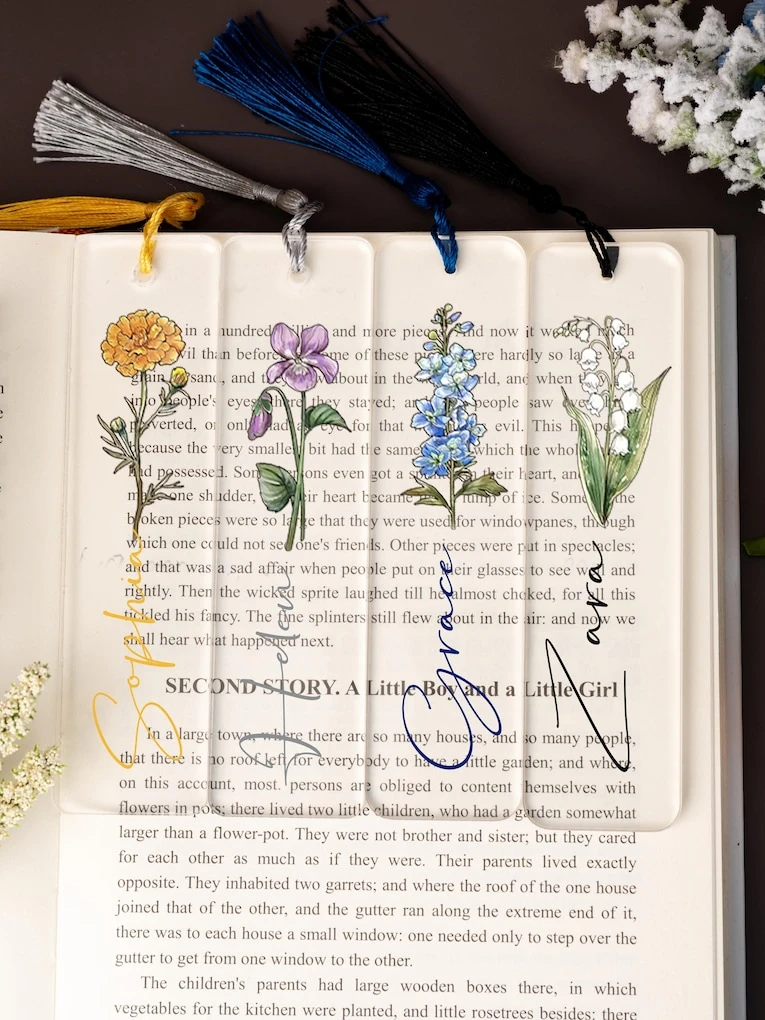 in a hundred million and more pieces. And now it much
evil than before, some of these pieces were hardly so large as a
grain of sand, and they flew about in the world, and when they
into people's eyes, there they stayed; and people saw everything
perverted, or only had an eye for that evil. This happened
because the very smallest bit had the same which the whole
had possessed. Some persons even got a splinter in their heart, and
made one shudder, their heart became lump of ice. Some of the
broken pieces were so large that they were used for windowpanes, through
which one could not see one's friends. Other pieces were put in spectacles;
and that was a sad affair when people put on their glasses to see well and
rightly. Then the wicked sprite laughed till he almost choked, for all this
tickled his fancy. The fine splinters still flew about in the air: and now we
shall hear what happened next.
Sophia
Helena
Grace
Zara
SECOND STORY. A Little Boy and a Little Girl
In a large town, where there are so many houses, and so many people,
that there is no roof left for everybody to have a little garden; and where,
on this account, most persons are obliged to content themselves with
flowers in pots; there lived two little children, who had a garden somewhat
larger than a flower-pot. They were not brother and sister; but they cared
for each other as much as if they were. Their parents lived exactly
opposite. They inhabited two garrets; and where the roof of the one house
joined that of the other, and the gutter ran along the extreme end of it,
there was to each house a small window: one needed only to step over the
gutter to get from one window to the other.
The children's parents had large wooden boxes there, in which
vegetables for the kitchen were planted, and little rosetrees besides: there